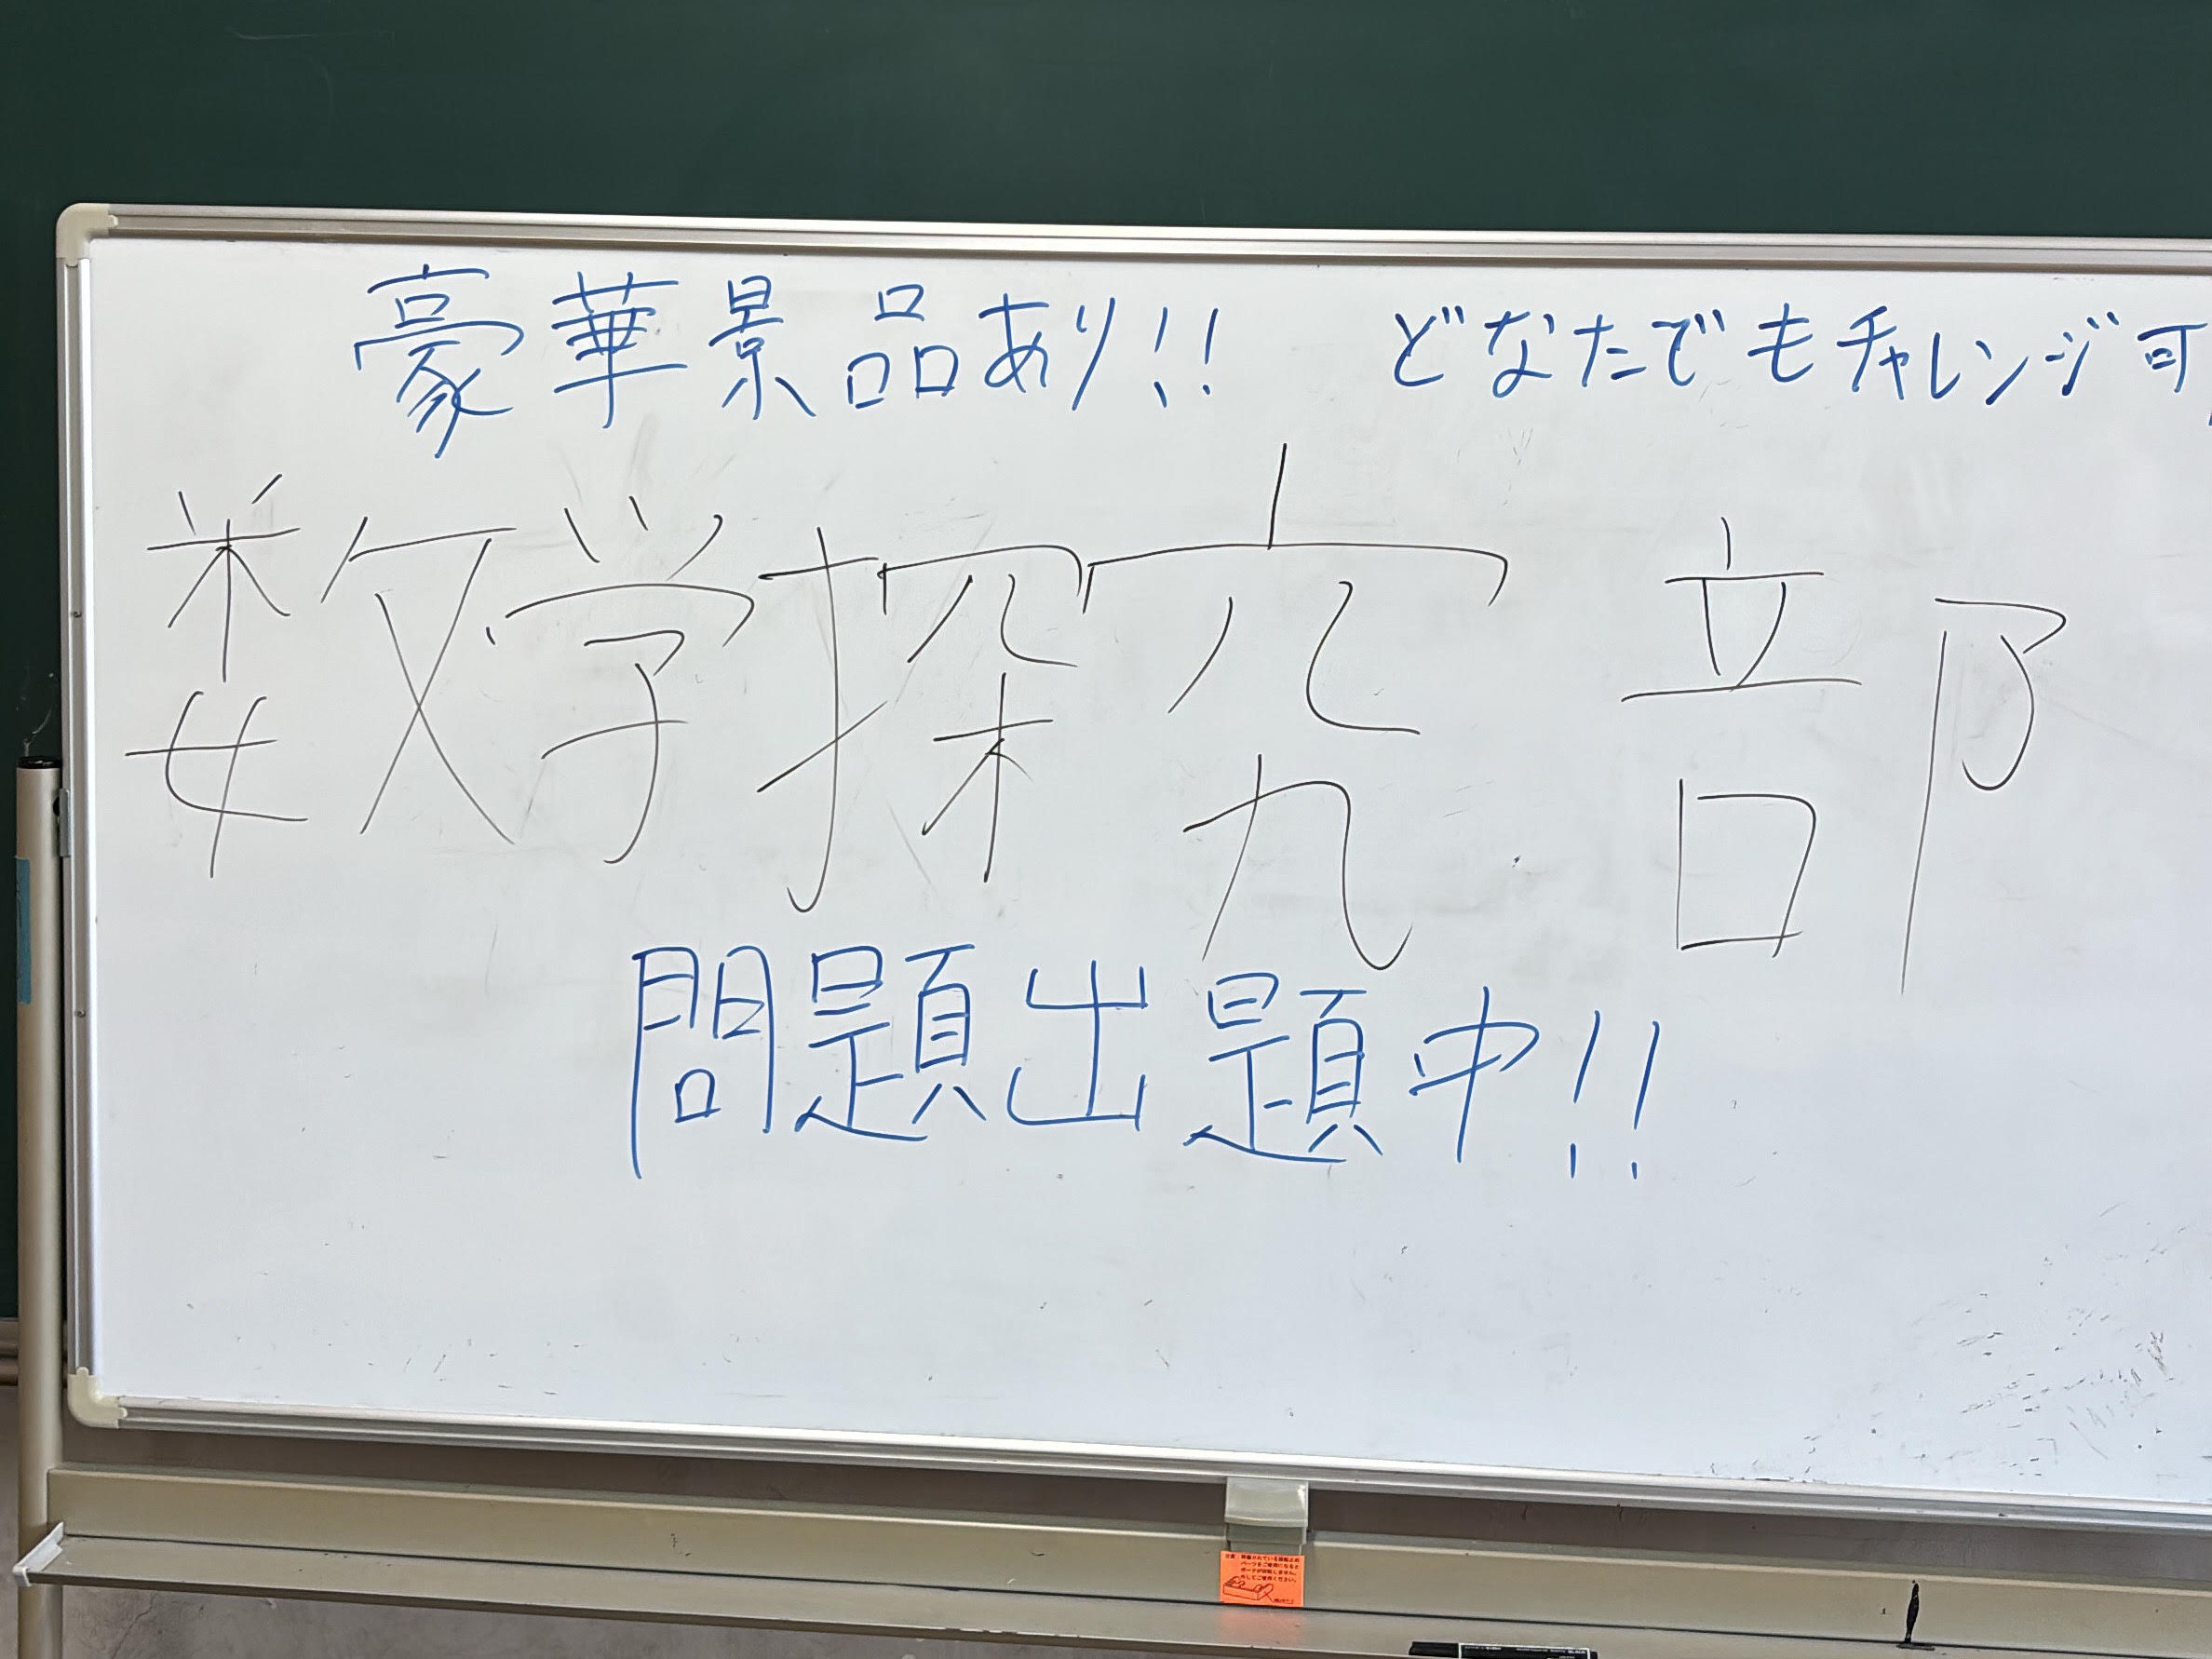 豪華景品あり!! どなたでもチャレンジ可
数学探究部
問題出題中!!